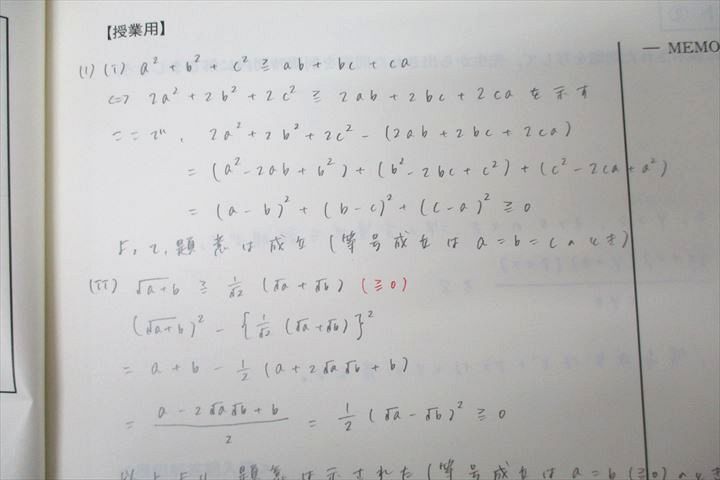 【授業用】
— MEMO
(1) (i) a² + b² + c² ≧ ab + bc + ca
⇔ 2a² + 2b² + 2c² ≧ 2ab + 2bc + 2ca を示す
ここで、 2a² + 2b² + 2c² - (2ab + 2bc + 2ca)
= (a² - 2ab + b²) + (b² - 2bc + c²) + (c² - 2ca + a²)
= (a - b)² + (b - c)² + (c - a)² ≧ 0
よって、題意は成立 (等号成立は a = b = c のとき)
(ii) √a+b ≧ 1/√2 (√a + √b) (≧0)
(√a+b)² - {1/√2 (√a + √b)}²
= a + b - 1/2 (a + 2√a√b + b)
= a - 2√a√b + b / 2 = 1/2 (√a - √b)² ≧ 0
以上より、題意は示された (等号成立は a = b (≧0) のとき